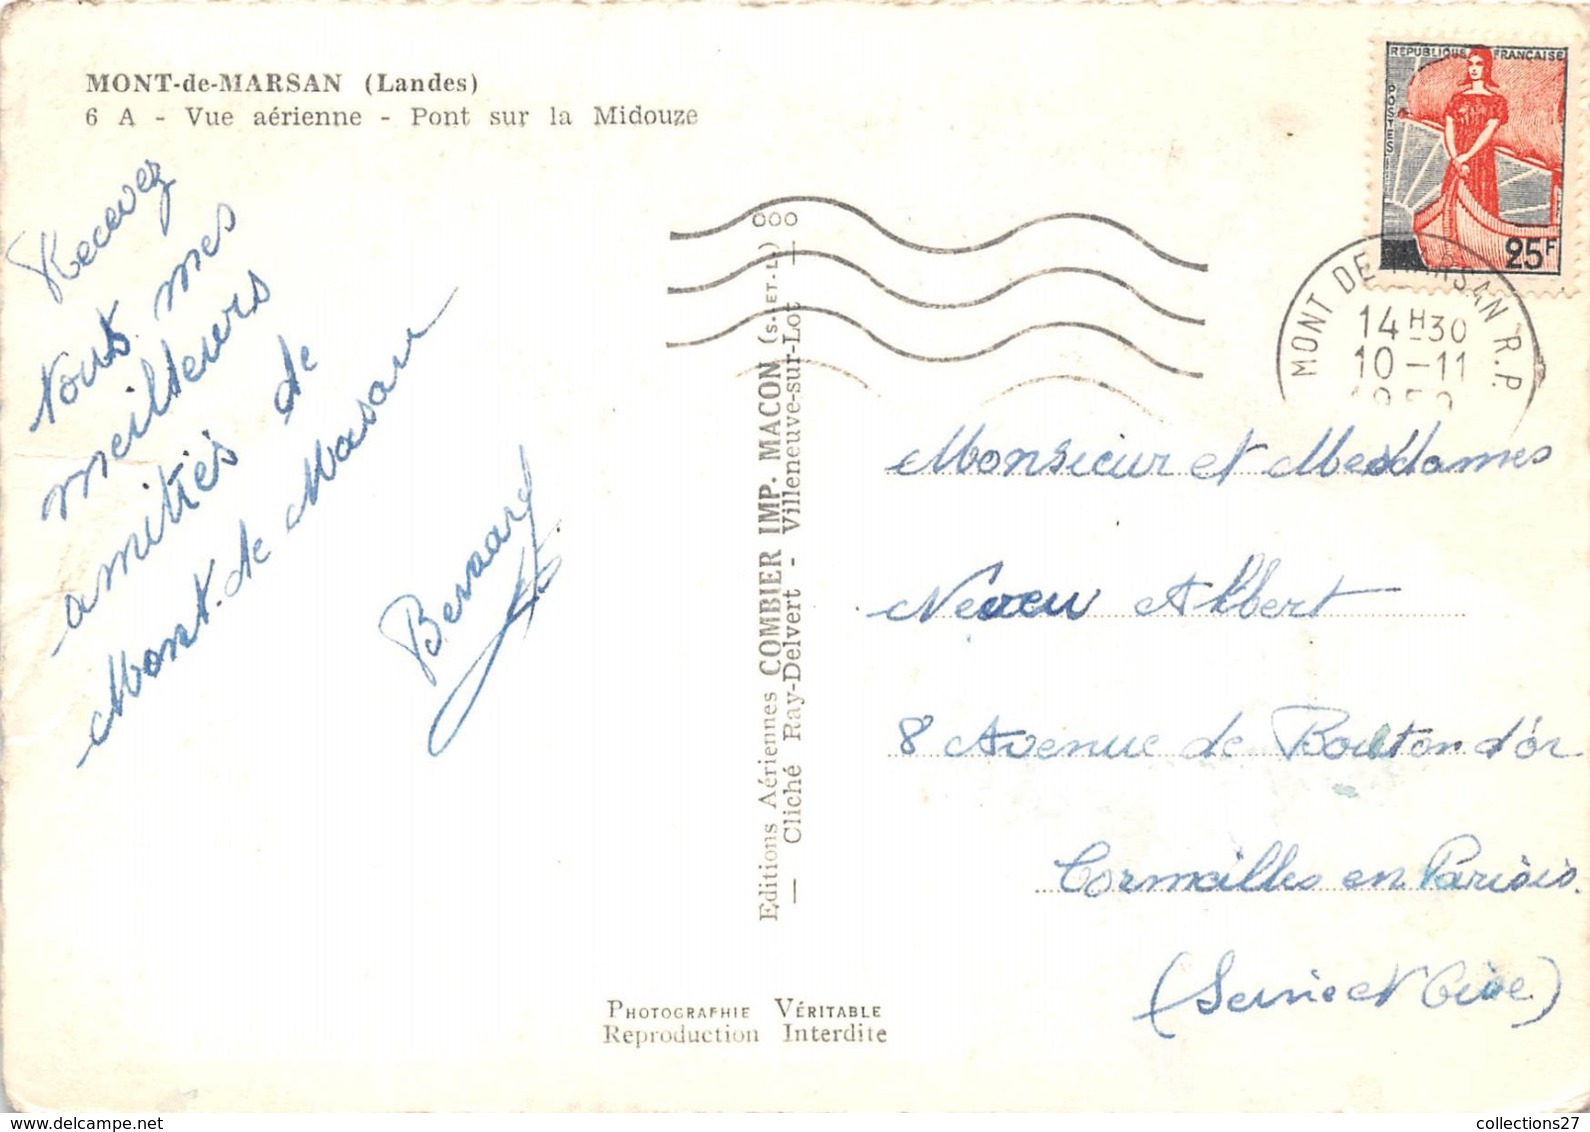 MONT-de-MARSAN (Landes)
6 A - Vue aérienne - Pont sur la Midouze
Recevez
tous mes
meilleurs
amitiés de
Mont.de Masan
Bernard
Editions Aériennes COMBIER IMP. MACON (S.-ET-L.) 000
— Cliché Ray-Delvert - Villeneuve-sur-Lot —
PHOTOGRAPHIE VÉRITABLE
Reproduction Interdite
REPUBLIQUE FRANÇAISE
POSTES
25F
MONT DE MARSAN R.P.
14 H30
10-11
1959
Monsieur et Mesdames
Neveu Albert
8 Avenue de Boutton d'or
Cormeilles en Parisis
(Seine et Oise)
collections27